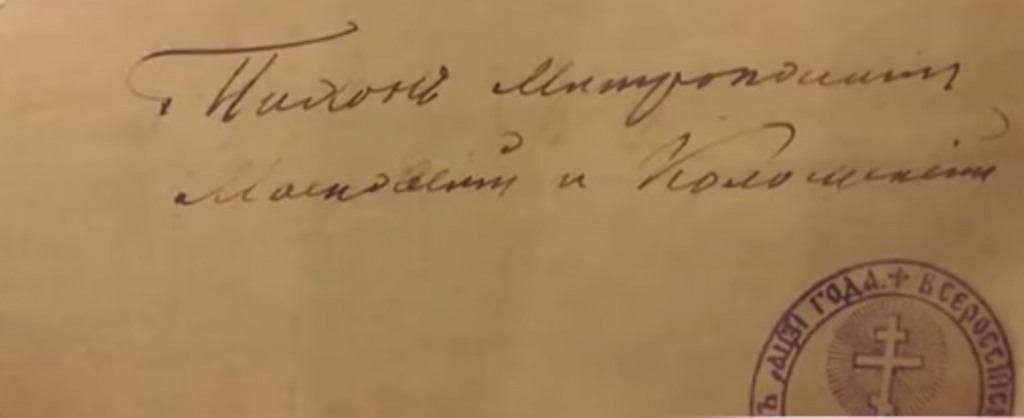 Тихонъ Митрополитъ
Московскій и Коломенскій
҂АЦЗІ ГОДА. ✢ ВСЕРОССІЙСК